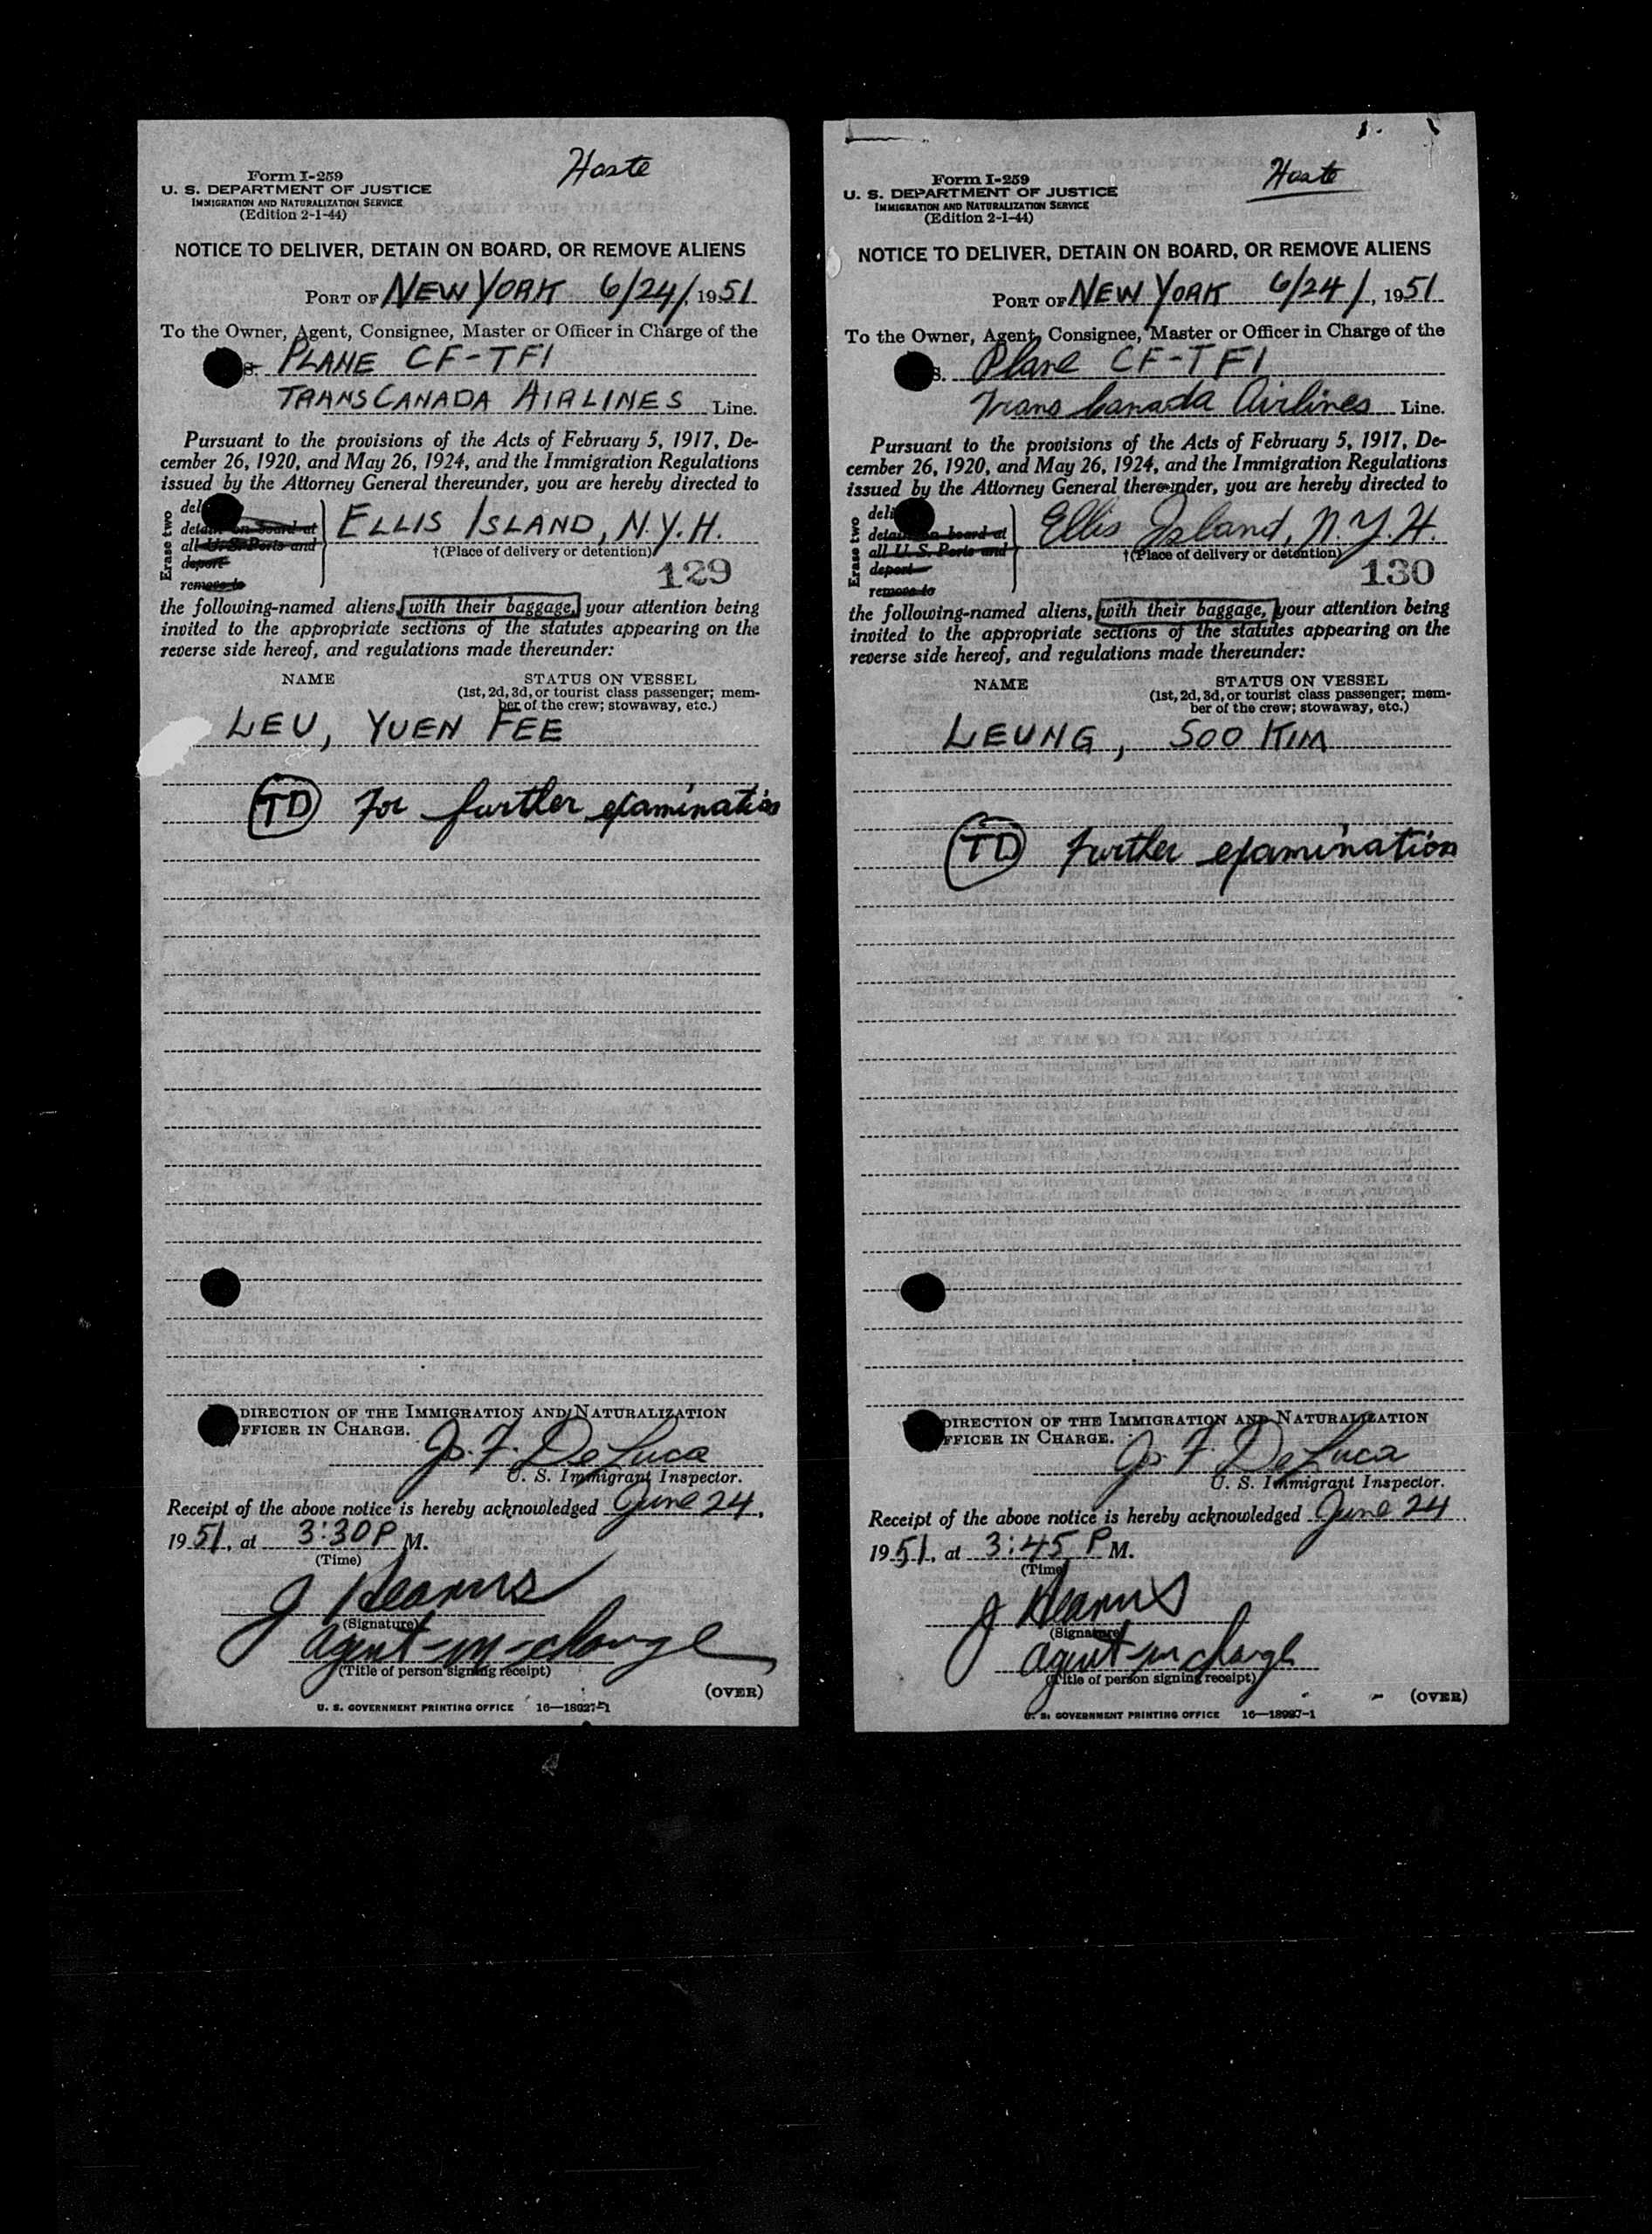 Haste
Form I-259
U. S. DEPARTMENT OF JUSTICE
IMMIGRATION AND NATURALIZATION SERVICE
(Edition 2-1-44)
NOTICE TO DELIVER, DETAIN ON BOARD, OR REMOVE ALIENS
PORT OF NEW YORK 6/24/, 1951
To the Owner, Agent, Consignee, Master or Officer in Charge of the
S. PLANE CF-TFI
TRANSCANADA AIRLINES Line.
Pursuant to the provisions of the Acts of February 5, 1917, De-
cember 26, 1920, and May 26, 1924, and the Immigration Regulations
issued by the Attorney General thereunder, you are hereby directed to
Erase two
del
detain on board at
all U. S. Ports and
deport
remove to
ELLIS ISLAND, N.Y.H.
†(Place of delivery or detention)
129
the following-named aliens, with their baggage, your attention being
invited to the appropriate sections of the statutes appearing on the
reverse side hereof, and regulations made thereunder:
NAME STATUS ON VESSEL
(1st, 2d, 3d, or tourist class passenger; mem-
ber of the crew; stowaway, etc.)
LEU, YUEN FEE
TD for further examination
DIRECTION OF THE IMMIGRATION AND NATURALIZATION
FFICER IN CHARGE.
Jo. F. De Luca
U. S. Immigrant Inspector.
Receipt of the above notice is hereby acknowledged June 24,
1951, at 3:30 P M.
(Time)
J Hearns
(Signature)
agent-in-charge
(Title of person signing receipt)
(OVER)
U. S. GOVERNMENT PRINTING OFFICE 16—18927-1
Haste
Form I-259
U. S. DEPARTMENT OF JUSTICE
IMMIGRATION AND NATURALIZATION SERVICE
(Edition 2-1-44)
NOTICE TO DELIVER, DETAIN ON BOARD, OR REMOVE ALIENS
PORT OF NEW YORK 6/24/, 1951
To the Owner, Agent, Consignee, Master or Officer in Charge of the
S. Plane CF-TFI
Trans Canada Airlines Line.
Pursuant to the provisions of the Acts of February 5, 1917, De-
cember 26, 1920, and May 26, 1924, and the Immigration Regulations
issued by the Attorney General thereunder, you are hereby directed to
Erase two
deli
detain on board at
all U. S. Ports and
deport
remove to
Ellis Island, N.Y.H.
†(Place of delivery or detention)
130
the following-named aliens, with their baggage, your attention being
invited to the appropriate sections of the statutes appearing on the
reverse side hereof, and regulations made thereunder:
NAME STATUS ON VESSEL
(1st, 2d, 3d, or tourist class passenger; mem-
ber of the crew; stowaway, etc.)
LEUNG, SOO KIM
TD further examination
DIRECTION OF THE IMMIGRATION AND NATURALIZATION
FFICER IN CHARGE.
Jo. F. De Luca
U. S. Immigrant Inspector.
Receipt of the above notice is hereby acknowledged June 24
1951, at 3:45 P M.
(Time)
J Hearns
(Signature)
agent-in charge
(Title of person signing receipt)
(OVER)
U. S. GOVERNMENT PRINTING OFFICE 16—18927-1